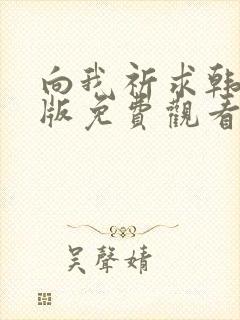 向我祈求韩
版免費觀看
吴聲婧